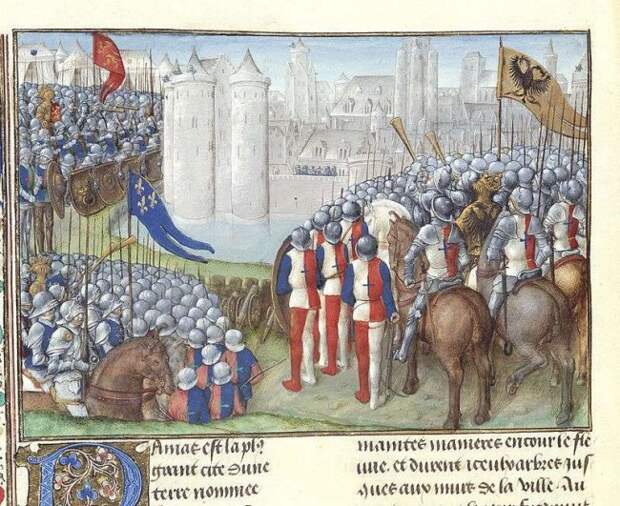 Damas est la plꝰ
grant cite dune
terre nommee
maintes manieres encour le fle
uue. et durent iceulx arbres jus
ques aux murs de la ville. Au